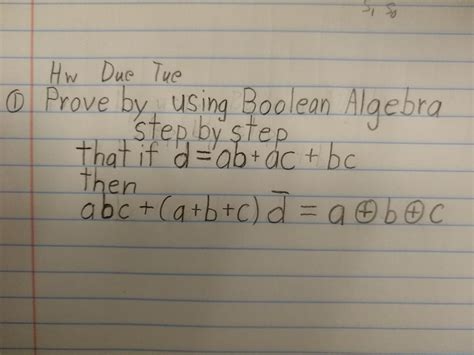 S, So
Hw Due Tue
① Prove by using Boolean Algebra
step by step
that if d = ab + ac + bc
then
abc + (a+b+c) d̅ = a ⊕ b ⊕ c